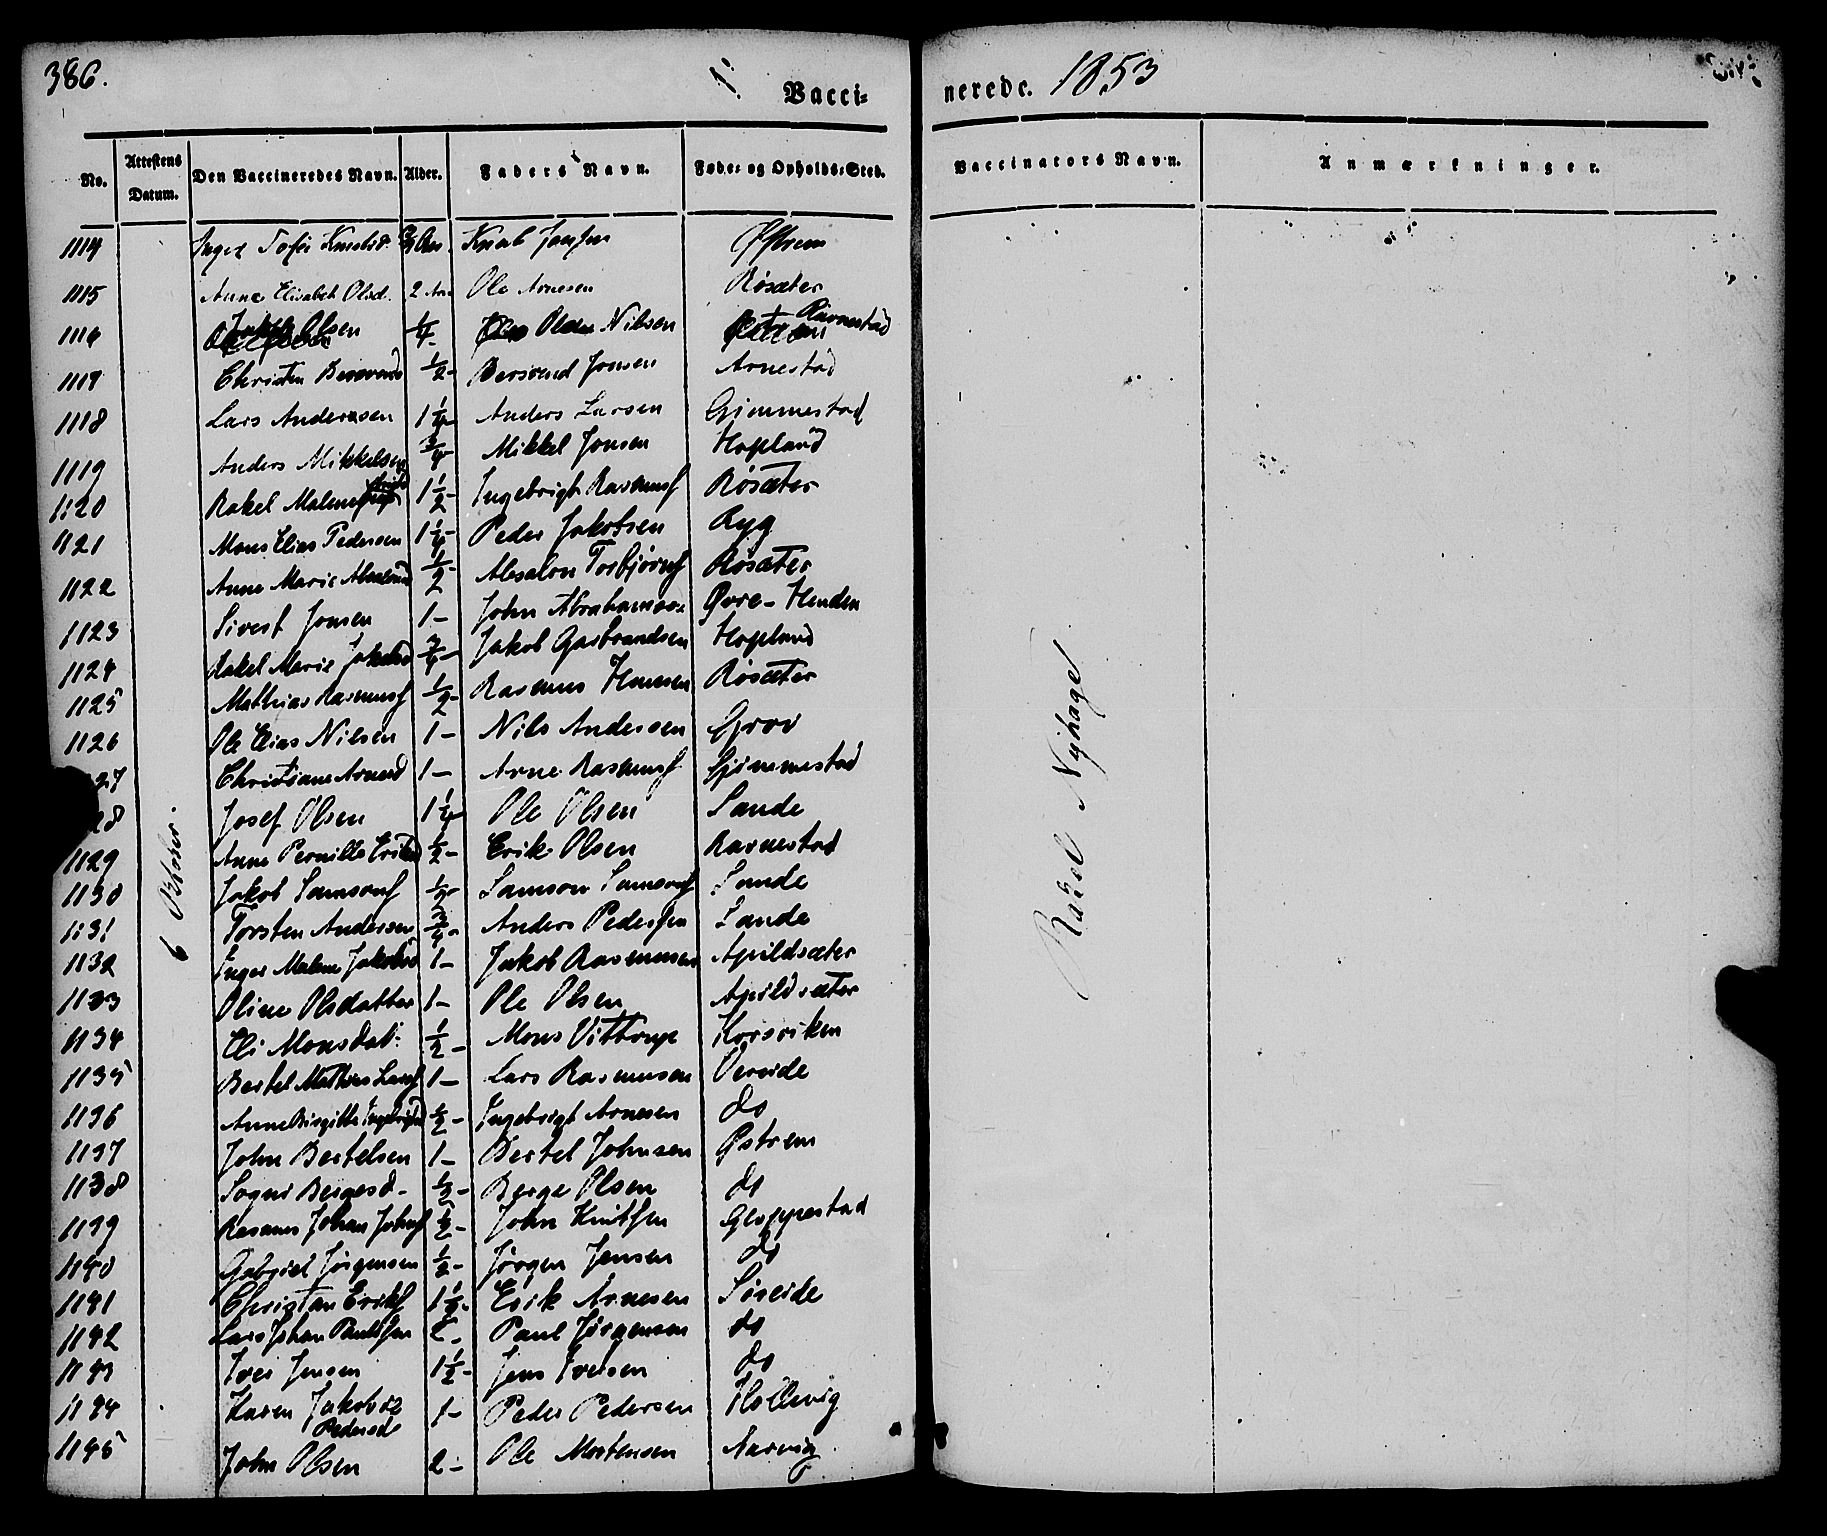 386.
Vaccinerede. 1853
No. Attestens Datum. Den Vaccineredes Navn. Alder. Faders Navn. Føde- og Opholds-Sted. Vaccinators Navn. Anmærkninger.
6 Oktober.
Rakel Nyhagel
1114 Inger Sofie Knutsd. Knut
1115 Anne Elisabeth Olsd. 2 Aar Ole Arnesen Røsæter
1116 Jakob Olsen 1/4 - Ole Nilsen Ravnestad
1117 Christen 1/2 - Berserend Jonsen Arnestad
1118 Lars Andersen 1 1/4 - Anders Larsen Gimmestad
1119 Anders Mikkelsen 3/4 - Mikkel Jonsen Hopland
1120 Rakel Malene 1 1/2 - Ingebrigt Rasmusf Røsæter
1121 Mons Elias Pedersen 1 1/4 - Peder Jakobsen Ryg
1122 Anne Marie Absalond 1/2 - Absalon Torbjørnf Røsæter
1123 Sivert Jonsen 1 - John Abrahamsen Øvre-Henden
1124 Rakel Marie Jakobsd 3/4 - Jakob Gasbrandsen Hopland
1125 Mathias Rasmusf 1/2 - Rasmus Hansen Røsæter
1126 Ole Elias Nilsen 1 - Nils Andersen Grov
27 Christiane Arnesd 1 - Arne Rasmusf Gjimmestad
28 Josef Olsen 1 1/4 - Ole Olsen Sande
1129 Anne Pernille Eriksd 1/2 - Erik Olsen Ravnestad
1130 Jakob Samsonf Samson Samsonf Sande
1131 Torsten Andersen 3/4 - Anders Pedersen Sande
1132 Inger Malene Jakobsd 1 - Jakob Rasmusen Apildsæter
1133 Oline Olsdatter 1 - Ole Olsen Apildsæter
1134 Eli Monsdat: 1/2 - Mons Vittrup Korsviken
1135 Bertel Mathias Larsf 1 - Lars Rasmusen Vereide
1136 Anne Birgitte Ingebrigtsd 1/2 - Ingebrigt Arnesen do
1137 John Bertelsen 1 - Bertel Johnsen Østrem
1138 Sogni Bergesd - 1/2 - Berge Olsen do
1139 Rasmus Johan Johnsf 1/2 - John Knutsen Gloppestad
1140 Gabriel Jørgensen 1/2 - Jørgen Jensen do
1141 Christian Eriksf Erik Arnesen Søreide
1142 Lars Johan Paulsen 2 - Paul Jørgensen do
1143 Iver Jensen 1 1/2 - Jens Iversen do
1144 Karen Jakobie Pedersd 1 - Peder Pedersen Hollevig
1145 John Olsen 2 - Ole Mortensen Aarvig